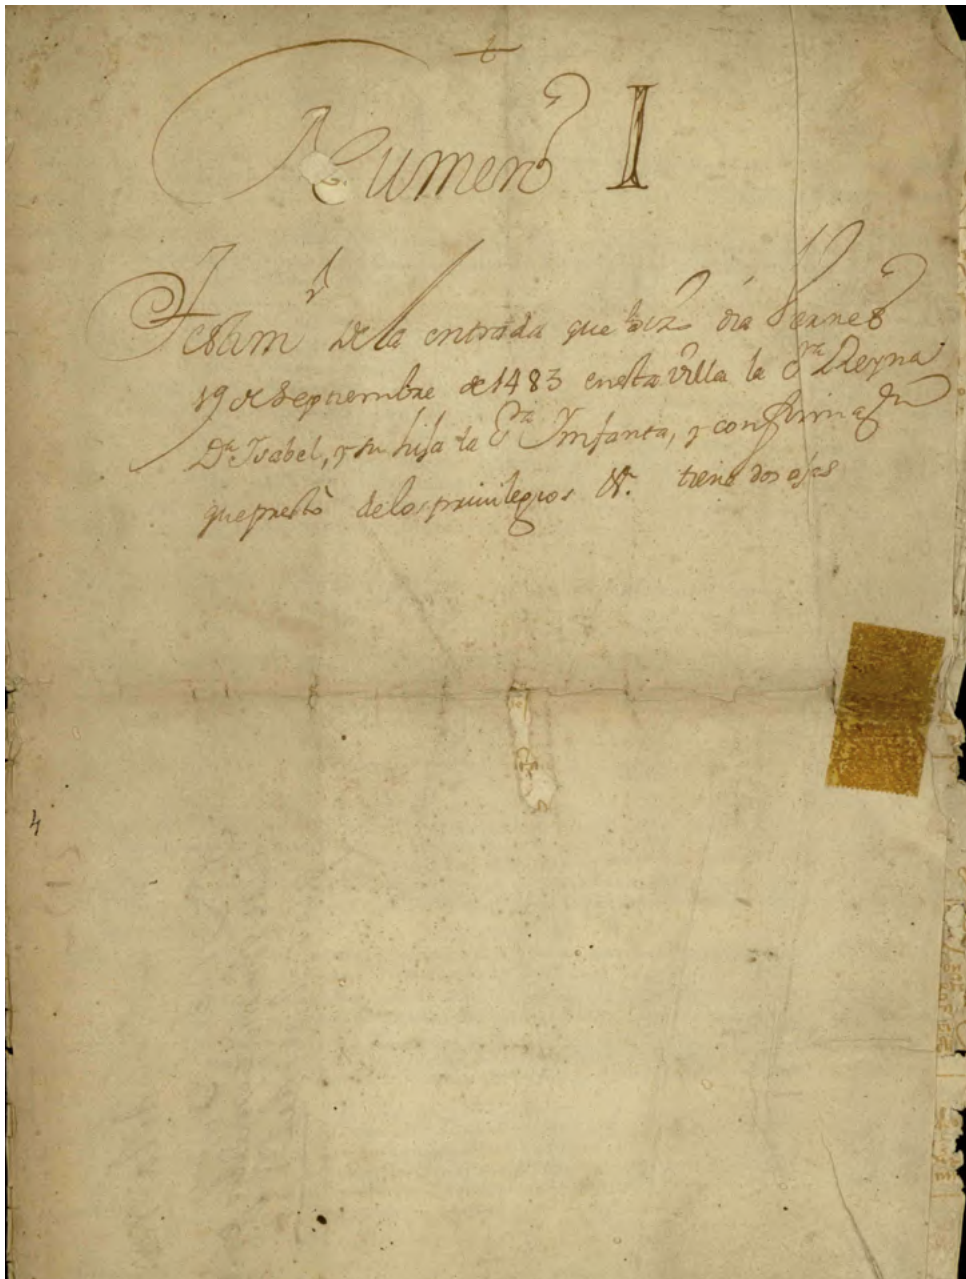 Numero I
Testim.º de la entrada que hizo dia Viernes
19 de Septiembre de 1483 en esta villa la S.ra Reyna
D.ª Isabel, y su hija la S.ra Imfanta, y confirmaz.on
que prestò de los privilegios &.ª tiene dos ojas
4